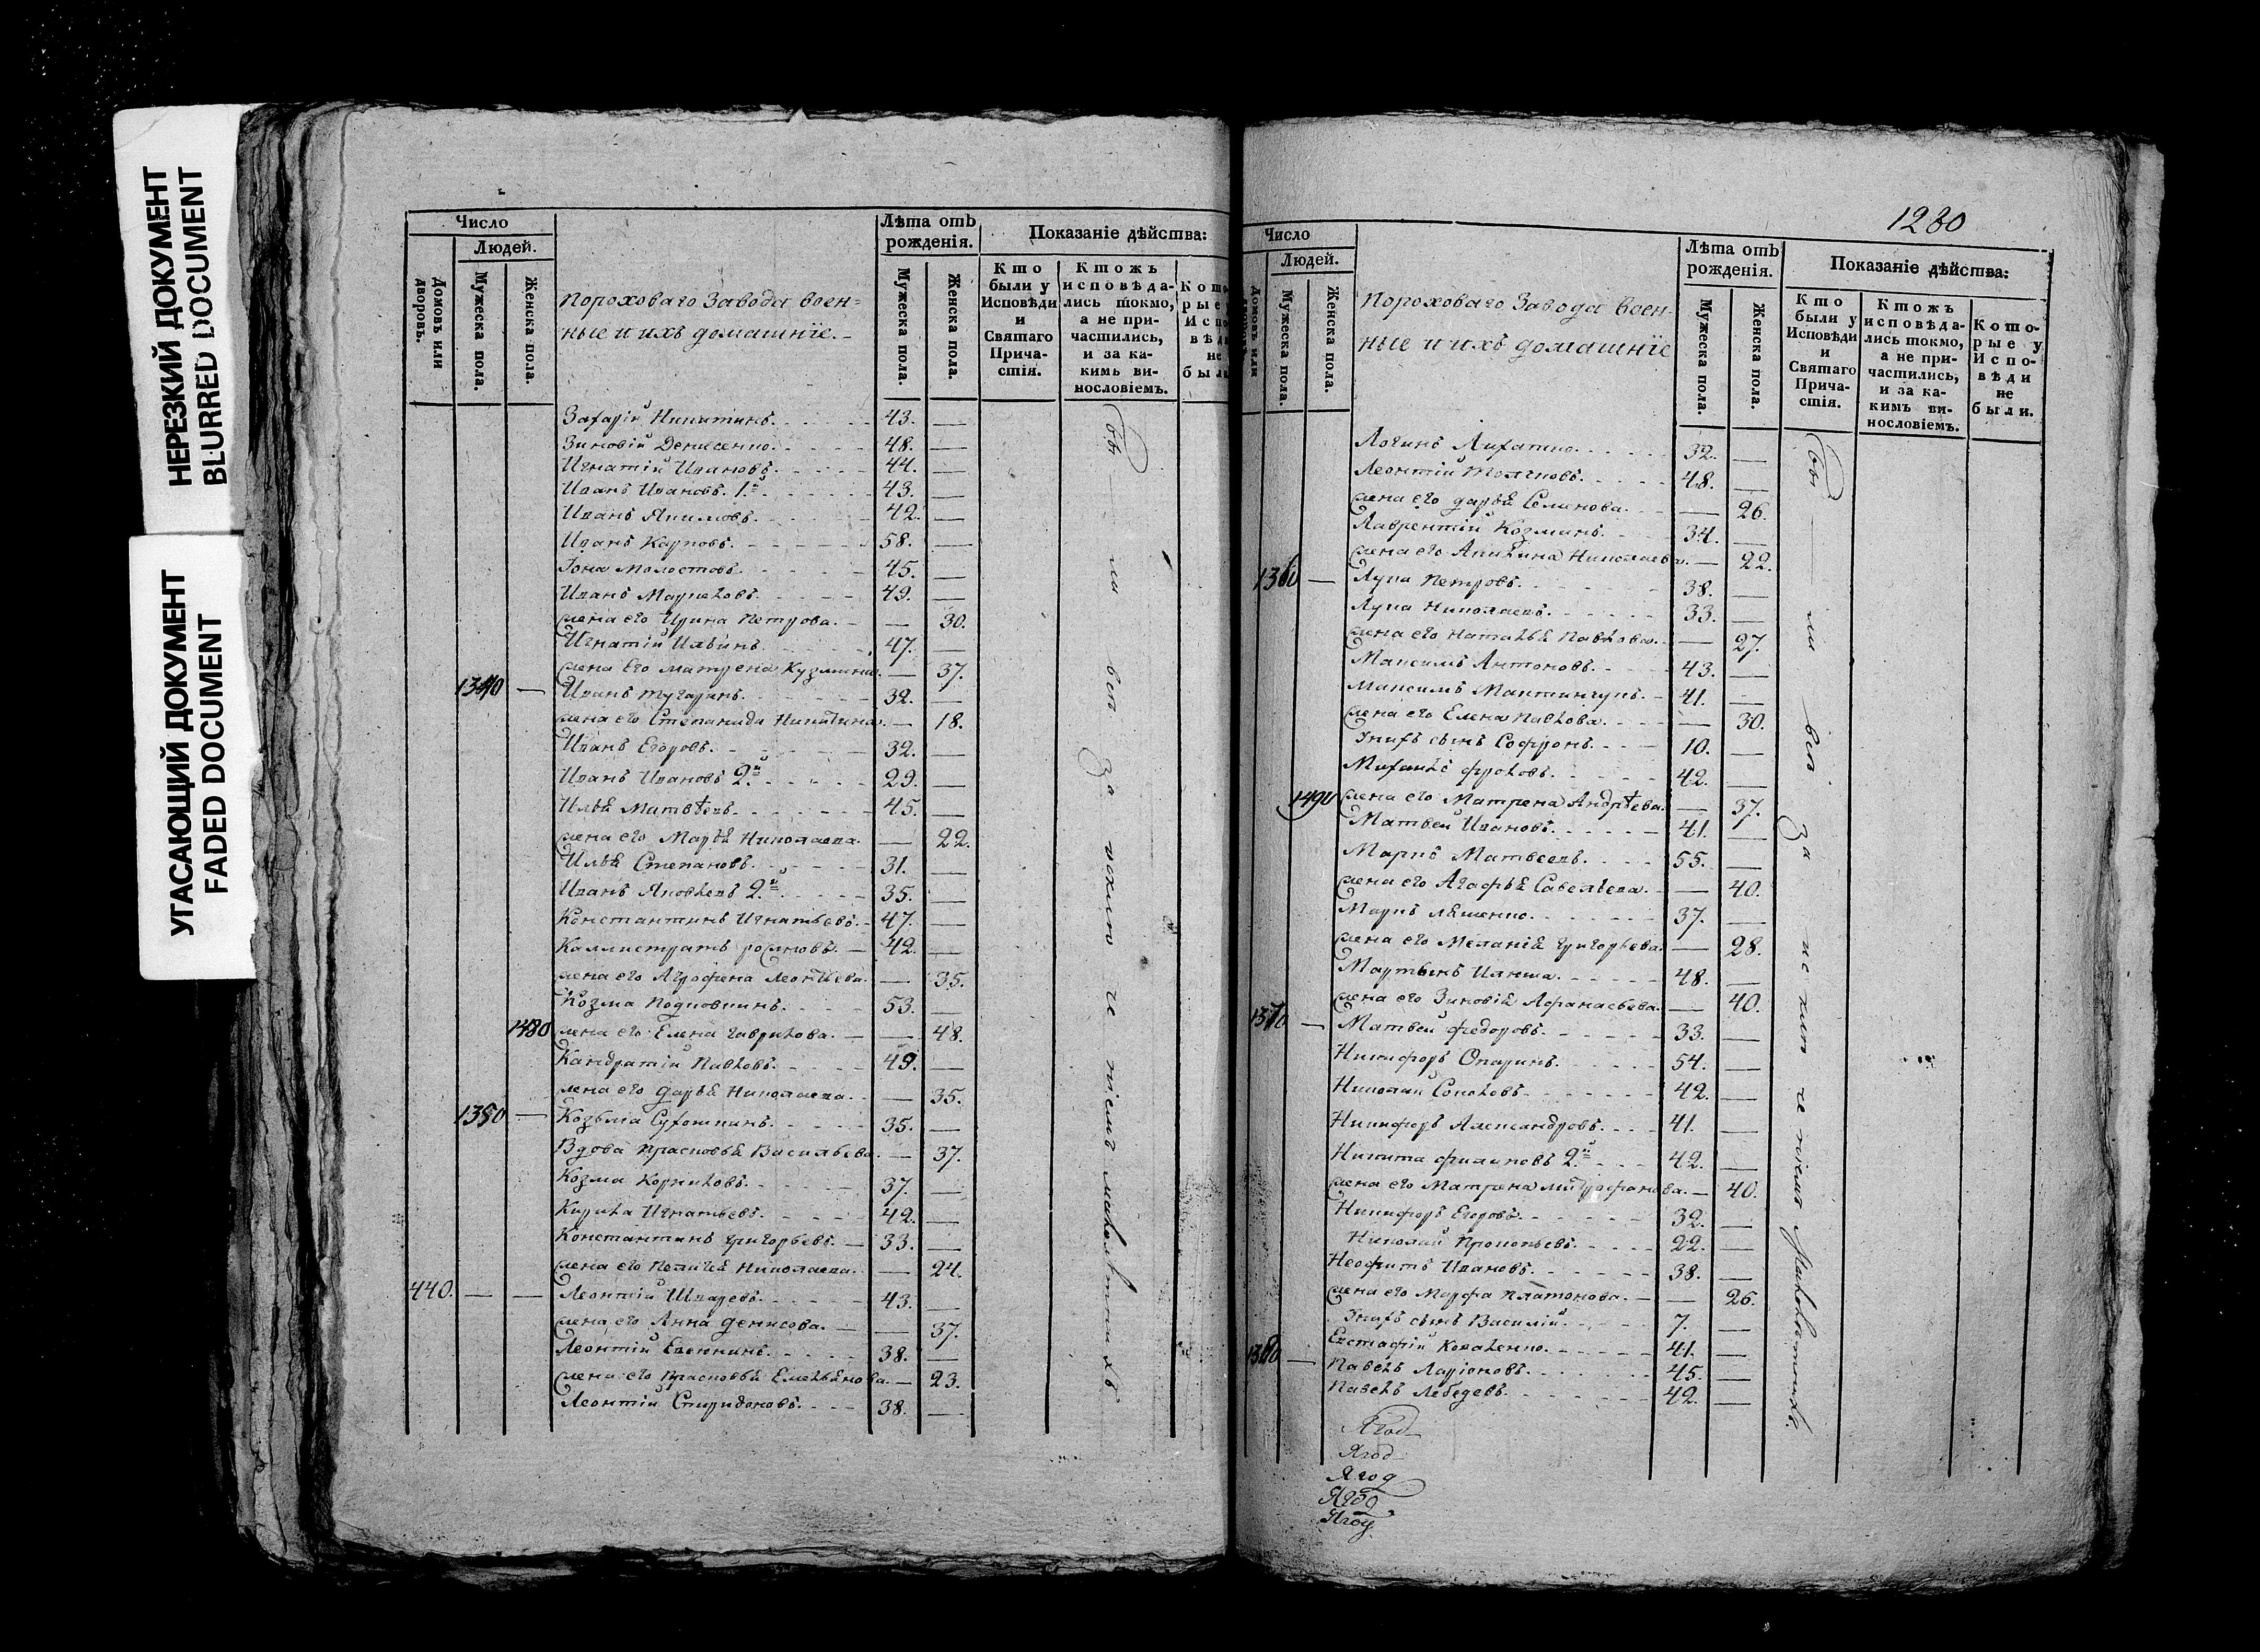 НЕРЕЗКИЙ ДОКУМЕНТ
BLURRED DOCUMENT
УГАСАЮЩИЙ ДОКУМЕНТ
FADED DOCUMENT
Число
Людей.
Домовъ или дворовъ.
Мужеска пола.
Женска пола.
Пороховаго Завода воен=
ные и ихъ домашнїе.
Лѣта отъ рожденія.
Мужеска пола.
Женска пола.
Показаніе дѣйства:
Кто были у Исповѣди и Святаго Причастія.
Ктожъ исповѣдались токмо, а не причастились, и за какимъ винословіемъ.
Захарій Никитинъ. 43. —
Зиновій Денисенко. 48. —
Игнатій Ивановъ. 44. —
Иванъ Ивановъ. 1й. 43. —
Иванъ Якимовъ. 42. —
Иванъ Карповъ. 58. —
Іона Молостовъ. 45. —
Иванъ 49. —
жена его Ирина Петрова. — 30.
Игнатій Ильинъ. 47. —
жена Его Матрена Кузмина. — 37.
1340 — Иванъ Тугаринъ. 32. —
жена его Степанида Никитина. — 18.
Иванъ Егоровъ. 32. —
Иванъ Ивановъ 2й. 29. —
Илья Матвѣевъ. 45. —
жена его Марья Николаева. — 22.
Илья Степановъ. 31. —
Иванъ Яковлевъ 2й. 35. —
Константинъ Игнатьевъ. 47. —
Каллистратъ 42. —
жена его Агрофена Леонтьева. — 35.
Козма 53. —
1480 жена его Елена Гаврилова. — 48.
Кандратій Павловъ. 49. —
жена его Дарья Николаева. — 35.
1350 — Козьма 35. —
Вдова Прасковья Васильева. — 37.
Козма Корниловъ. 37. —
Кирила Игнатьевъ. 42. —
Константинъ Григорьевъ. 33. —
жена его Пелагея Николаева. — 24.
440. — — Леонтій 43. —
жена его Анна Денисова. — 37.
Леонтій 38. —
жена его Прасковья Емельянова. — 23.
Леонтій Спиридоновъ. 38. —
1230
Число
Людей.
Мужеска пола.
Женска пола.
Пороховаго Завода воен-
ные и ихъ домашнїе
Лѣта отъ рожденія.
Мужеска пола.
Женска пола.
Показаніе дѣйства:
Кто были у Исповѣди и Святаго Причастія.
Ктожъ исповѣдались токмо, а не причастились, и за какимъ винословіемъ.
Которые у Исповѣди не были.
Логинъ 32. —
Леонтій 48. —
жена его Дарья Семенова. — 26.
Лаврентій Козминъ. 34. —
жена его Акилина Николаева. — 22.
1360 — Лука Петровъ. 38. —
Лука Николаевъ. 33. —
жена его Наталья Павлова. — 27.
Максимъ Антоновъ. 43. —
Максимъ 41. —
жена его Елена Павлова. — 30.
Ихъ сынъ Софронъ. 10. —
Михаилъ Фроловъ. 42. —
1490 жена его Матрена Андрѣева. — 37.
Матвей Ивановъ. 41. —
Маркъ Матвеевъ. 55. —
жена его Агафья Савельева. — 40.
Маркъ Ляшенко. 37. —
жена его Меланія Григорьева. — 28.
Мартынъ 48. —
жена его Зиновія Афанасьева. — 40.
1370 — Матвей Федоровъ. 33. —
Никифоръ Опаринъ. 54. —
Николай Соколовъ. 42. —
Никифоръ Александровъ. 41. —
Никита Филиповъ 2й. 42. —
жена его Матрена Митрофанова. — 40.
Никифоръ Егоровъ. 32. —
Николай Прокопьевъ. 22. —
Неофитъ Ивановъ. 38. —
жена его Марфа Платонова. — 26.
Ихъ сынъ Василій. 7. —
Евстафій Коваленко. 41. —
1380 — Павелъ Ларіоновъ. 45. —
Павелъ Лебедевъ. 42. —